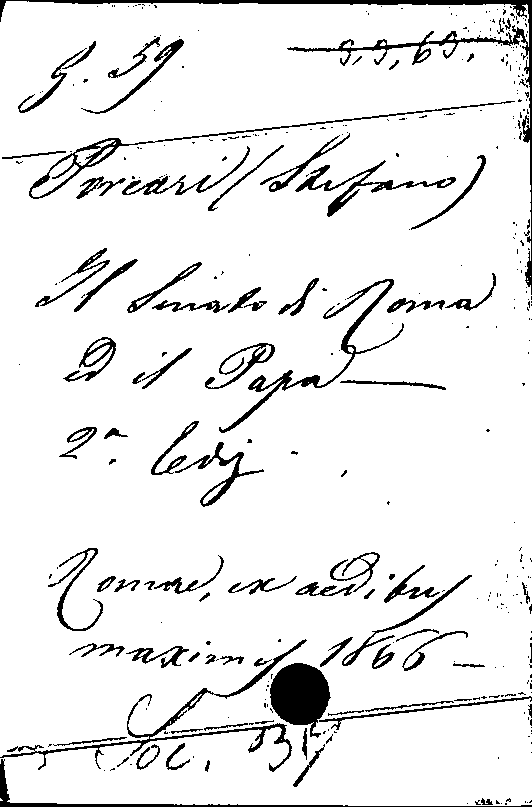 G. 59
9, 9, 69.
Porcari (Stefano)
Il Senato di Roma
ed il Papa —
2ª. ediz.
Romae, ex aedibus
maximis 1866 —
Soc.